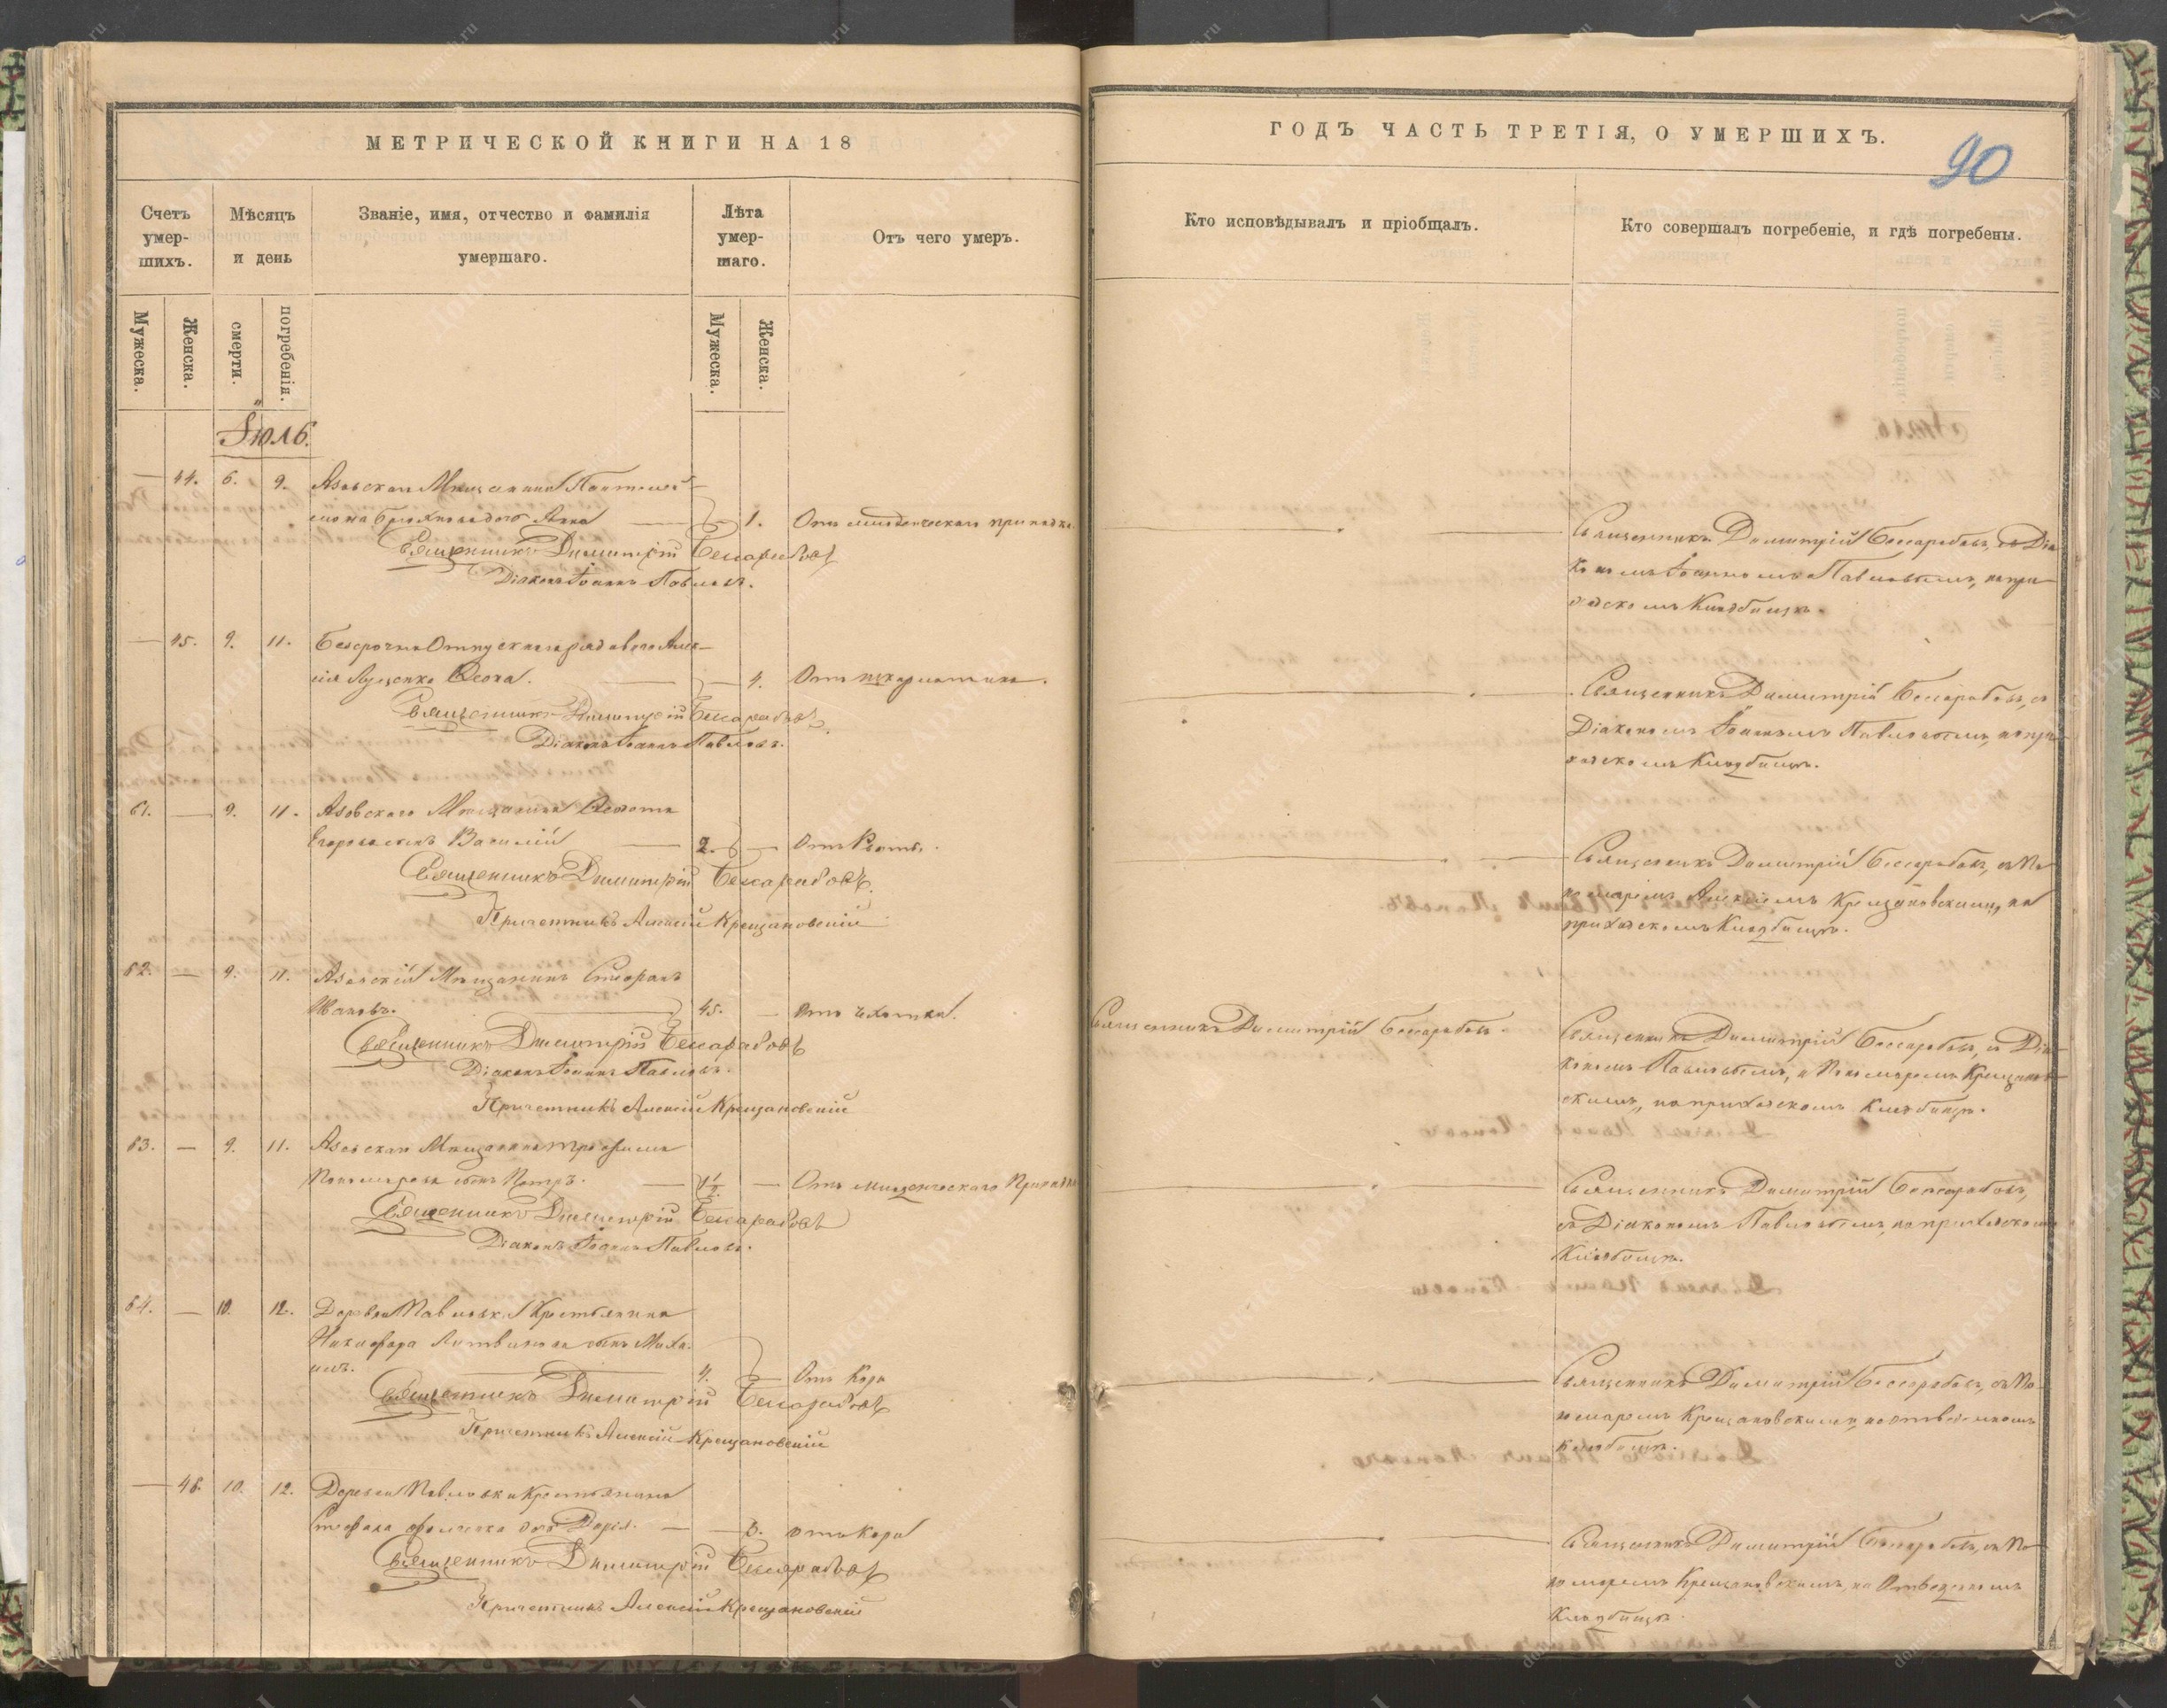 МЕТРИЧЕСКОЙ КНИГИ НА 18
Счетъ умер-шихъ.
Мѣсяцъ и день
Званіе, имя, отчество и фамилія умершаго.
Лѣта умер-шаго.
Отъ чего умеръ.
Мужеска.
Женска.
смерти.
погребенія.
Мужеска.
Женска.
Іюль.
— 44. 6. 9. Азовскаго Мѣщанина
дочь Анна — 1. Отъ младенческаго припадка
Священникъ Димитрій Бессарабовъ
Діаконъ Іоаннъ Павловъ.
— 45. 9. 11. Безсрочно Отпускнаго рядоваго Алек-
сія — 4.
Священникъ Димитрій Бессарабовъ.
Діаконъ Іоаннъ Павловъ.
61. — 9. 11. Азовскаго Мѣщанина
Егорова сынъ Василій — 2. — Отъ Рвоты.
Священникъ Димитрій Бессарабовъ.
Причетникъ Алексій Крещановскій
62. — 9. 11. Азовскій Мѣщанинъ Стефанъ
45. — Отъ чахотки.
Священникъ Димитрій Бессарабовъ
Діаконъ Іоаннъ Павловъ.
Причетникъ Алексій Крещановскій
63. — 9. 11. Азовскаго Мѣщанина Трофима
Пономарева сынъ Петръ. — 1/2. — Отъ младенческаго Припадка
Священникъ Димитрій Бессарабовъ
Діаконъ Іоаннъ Павловъ.
64. — 10. 12. Деревни Павловки Крестьянина
Никифора Литвинова сынъ Миха-
илъ. 4. — Отъ Кора
Священникъ Димитрій Бессарабовъ
Причетникъ Алексій Крещановскій
— 46. 10. 12. Деревни Павловки Крестьянина
Стефана дочь Дарія. — 3. отъ Кори
Священникъ Димитрій Бессарабовъ
Причетникъ Алексій Крещановскій
ГОДЪ ЧАСТЬ ТРЕТІЯ, О УМЕРШИХЪ.
90
Кто исповѣдывалъ и пріобщалъ.
Кто совершалъ погребеніе, и гдѣ погребены.
Священникъ Димитрій Бессарабовъ, съ Діа-
кономъ Іоанномъ Павловымъ, на при-
ходскомъ Кладбищѣ.
Священникъ Димитрій Бессарабовъ, съ
Діакономъ Іоанномъ Павловымъ, на при-
ходскомъ Кладбищѣ.
Священникъ Димитрій Бессарабовъ, съ По-
номаремъ Алексіемъ Крещановскимъ, на
приходскомъ Кладбищѣ.
Священникъ Димитрій Бессарабовъ.
Священникъ Димитрій Бессарабовъ, съ Діа-
кономъ Павловымъ, и Пономаремъ Крещанов-
скимъ, на приходскомъ Кладбищѣ.
Священникъ Димитрій Бессарабовъ,
съ Діакономъ Павловымъ, на приходскомъ
Кладбищѣ.
Священникъ Димитрій Бессарабовъ, съ По-
номаремъ Крещановскимъ, на отведенномъ
кладбищѣ.
Священникъ Димитрій Бессарабовъ, съ По-
номаремъ Крещановскимъ, на Отведенномъ
Кладбищѣ.